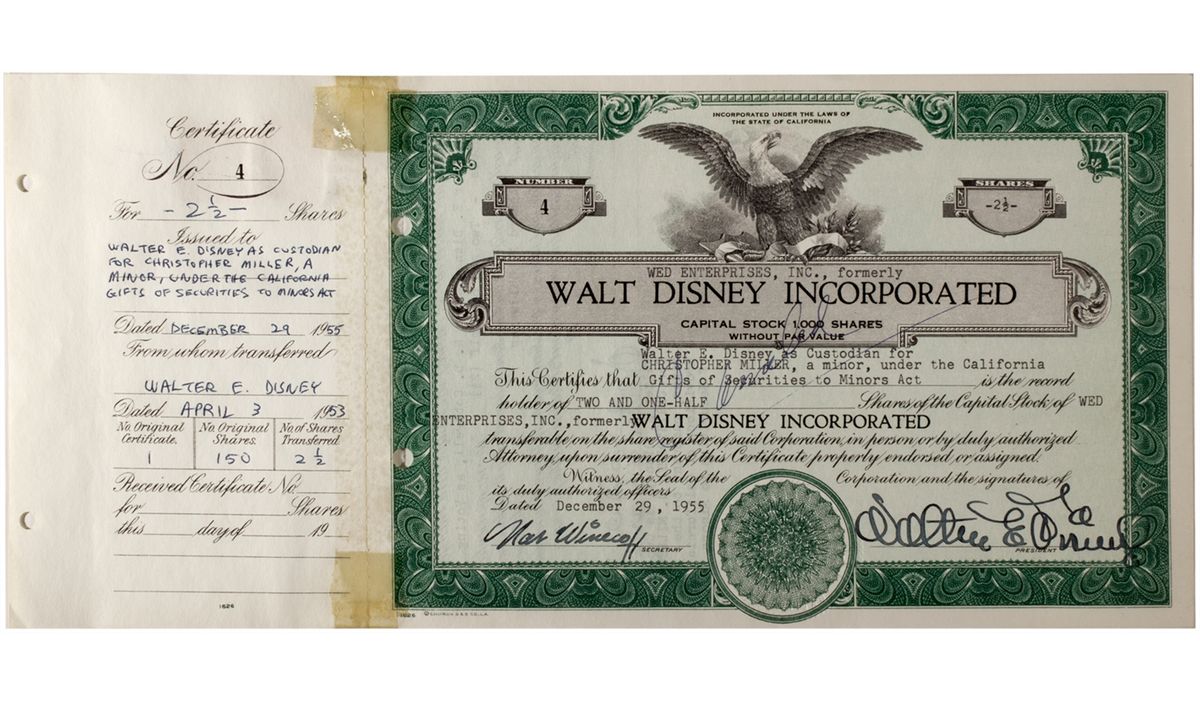 Certificate
No. 4
For -2½- Shares
Issued to
WALTER E. DISNEY AS CUSTODIAN
FOR CHRISTOPHER MILLER, A
MINOR, UNDER THE CALIFORNIA
GIFTS OF SECURITIES TO MINORS ACT
Dated DECEMBER 29 1955
From whom transferred
WALTER E. DISNEY
Dated APRIL 3 1953
No. Original Certificate. No. Original Shares. No. of Shares Transferred.
1 150 2½
Received Certificate No.
for Shares
this day of 19
1626
INCORPORATED UNDER THE LAWS OF
THE STATE OF CALIFORNIA
NUMBER
4
SHARES
-2½-
WED ENTERPRISES, INC., formerly
WALT DISNEY INCORPORATED
CAPITAL STOCK 1,000 SHARES
WITHOUT PAR VALUE
Walter E. Disney as Custodian for
CHRISTOPHER MILLER, a minor, under the California
This Certifies that Gifts of Securities to Minors Act is the record
holder of TWO AND ONE-HALF Shares of the Capital Stock of WED
ENTERPRISES,INC.,formerly WALT DISNEY INCORPORATED
transferable on the share register of said Corporation, in person or by duly authorized
Attorney, upon surrender of this Certificate properly endorsed or assigned.
Witness, the Seal of the Corporation and the signatures of
its duly authorized officers
Dated December 29, 1955
Nat Winecoff
SECRETARY
Walter E Disney
PRESIDENT
1626